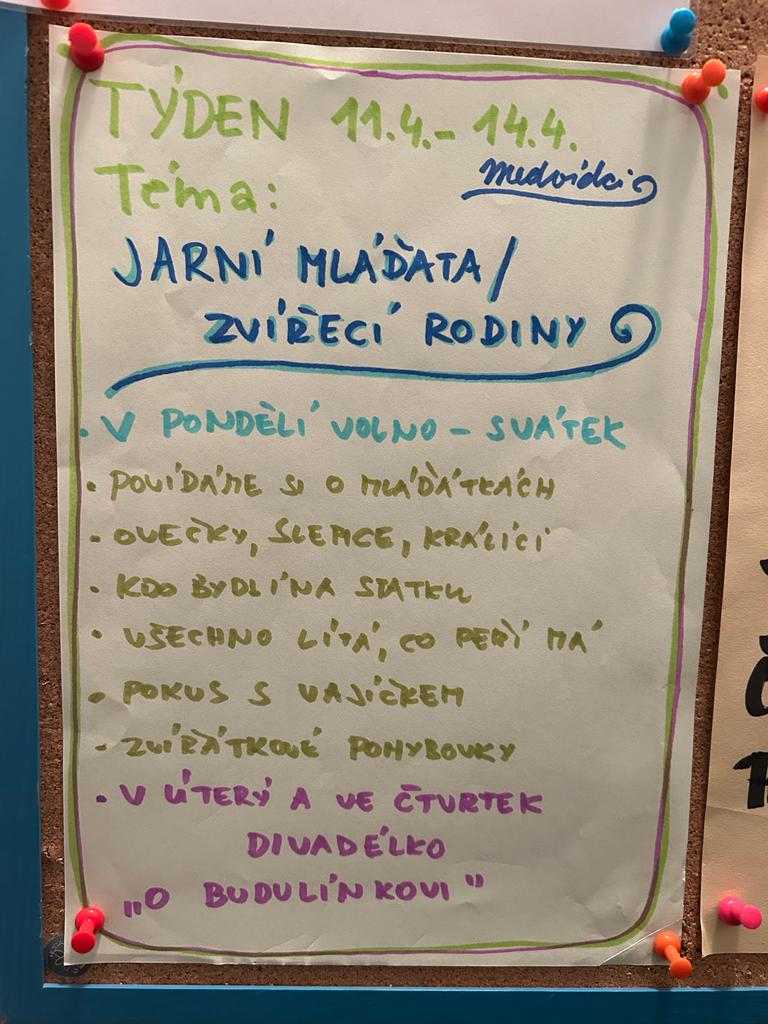 TÝDEN 11.4.- 14.4.
Téma:
Medvídci
JARNÍ MLÁĎATA/
ZVÍŘECÍ RODINY
. V PONDĚLÍ VOLNO - SVÁTEK
. POVÍDÁME SI O MLÁĎÁTKÁCH
. OVEČKY, SLEPICE, KRÁLÍCI
. KDO BYDLÍ NA STATKU
. VŠECHNO LÍTÁ, CO PEŘÍ MÁ
. POKUS S VAJÍČKEM
. ZVÍŘÁTKOVÉ POHYBOVKY
. V ÚTERÝ A VE ČTVRTEK
DIVADÉLKO
„O BUDULÍNKOVI"